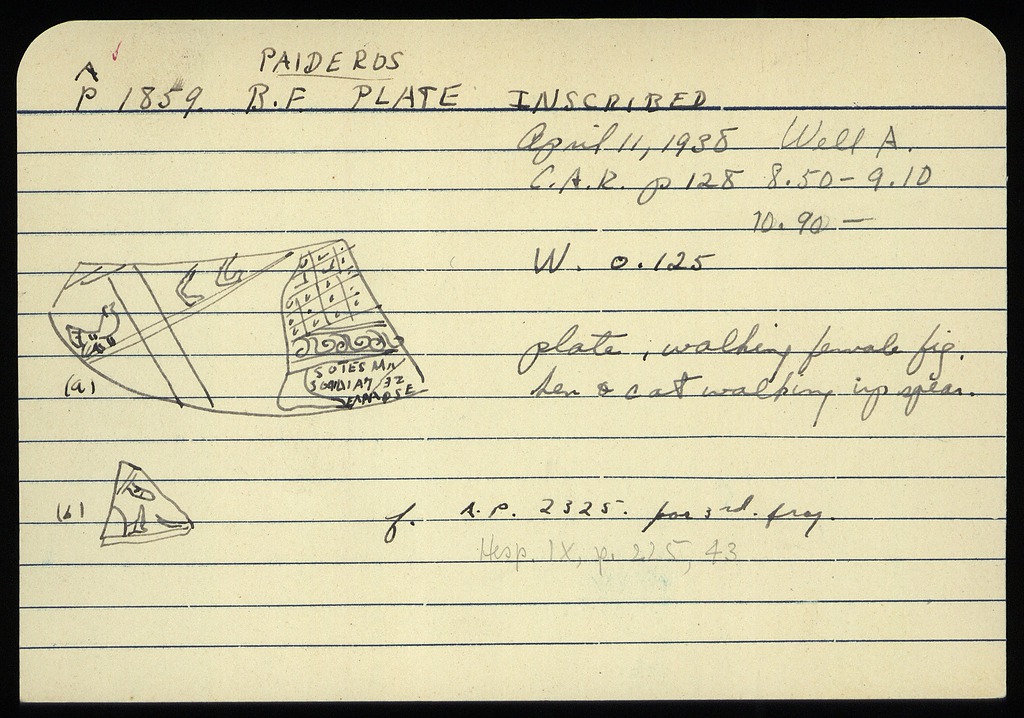 PAIDEROS
A
P 1859. B.F PLATE INSCRIBED
April 11, 1938 Well A.
C.A.R. p 128 8.50 – 9.10
10.90 —
W. 0.125
plate, walking female fig.
hen & cat walking up spear.
SOTES
(a)
(b)
cf. A.P. 2325. for 3rd. frag.
Hesp. IX, p. 225, 43